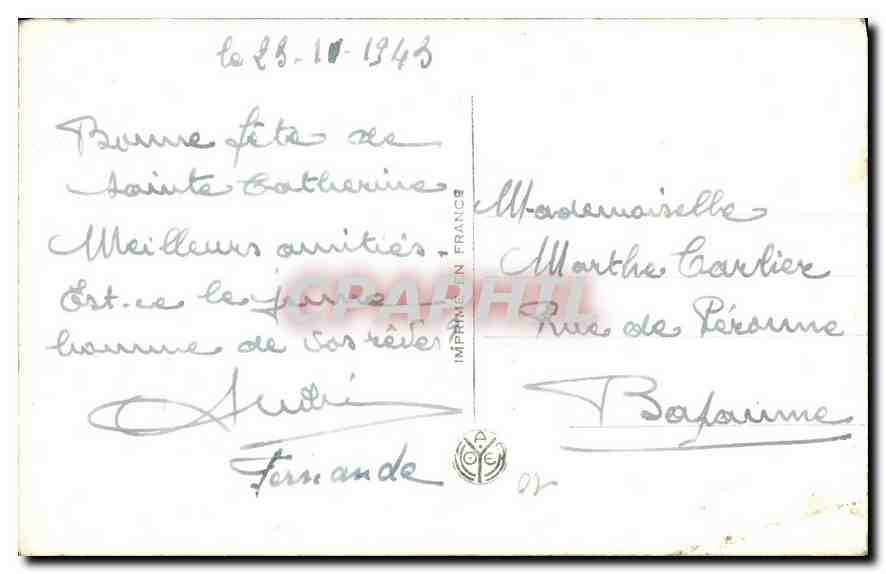 le 23-11-1943
Bonne fête de
Sainte Catherine
Meilleurs amitiés.
Est-ce le jeune
homme de vos rêves?
André
Fernande
IMPRIMÉ EN FRANCE
CPAPHIL
Mademoiselle
Marthe Carlier
Rue de Péronne
Bapaume